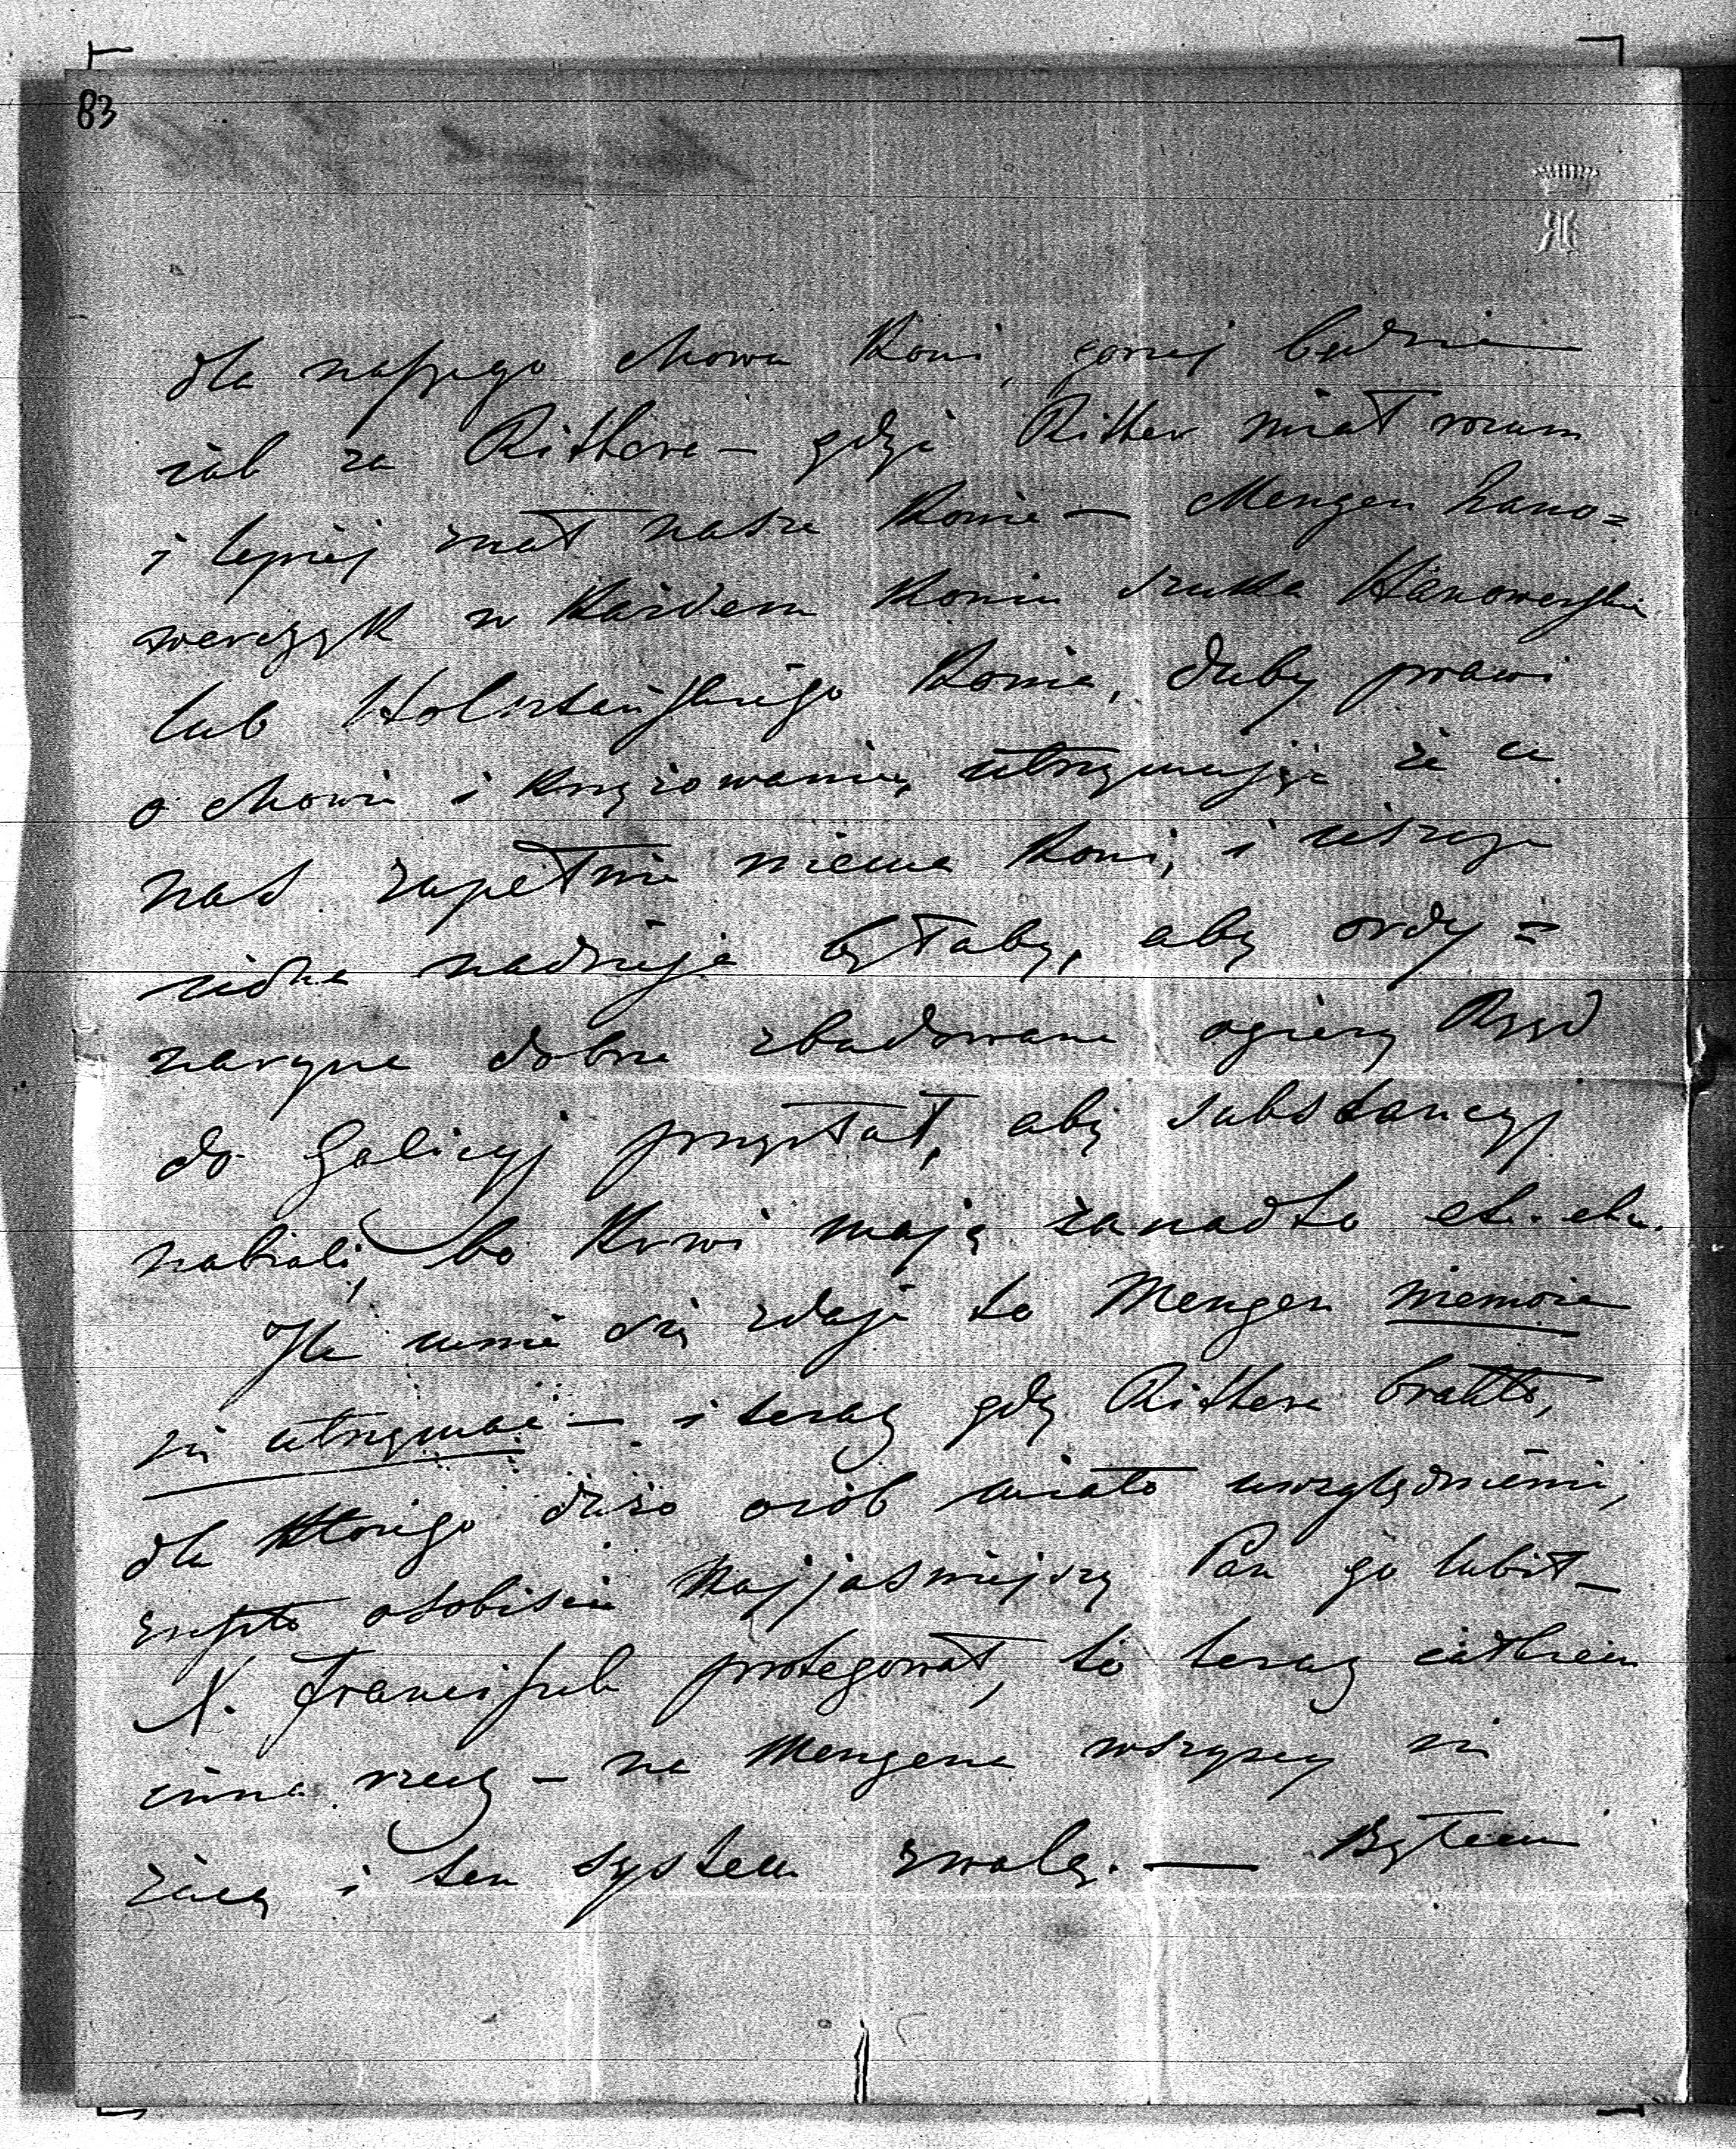 83
dla naszego chowu koni, gorzej będzie
jak za Rittera — gdyż Ritter miał rozum
i lepiej znał nasze konie — Mengen hano=
werczyk w każdem koniu szuka Hanowerskie
lub Holsztańskiego konia, duby prawi
o chowie i krzyżowaniu, utrzymując że u
nas zupełnie niema koni, i
nadzieja byłaby, aby ordy=
naryne dobrze zbudowane ogiery Rząd
do Galicyi przysłał, aby substancyj
nabrali, bo krwi mają zanadto etc. etc.
Ile mnie się zdaje to Mengen niemoże
się utrzymać — i teraz gdy Rittera brakło,
dla którego dużo osób miało uwzględnienie,
zresztą osobiście Najjaśniejszy Pan go lubił —
X. protegował, to teraz całkiem
inna rzecz — na Mengena wszyscy się
rzucą i ten system zwalą. — Byłem